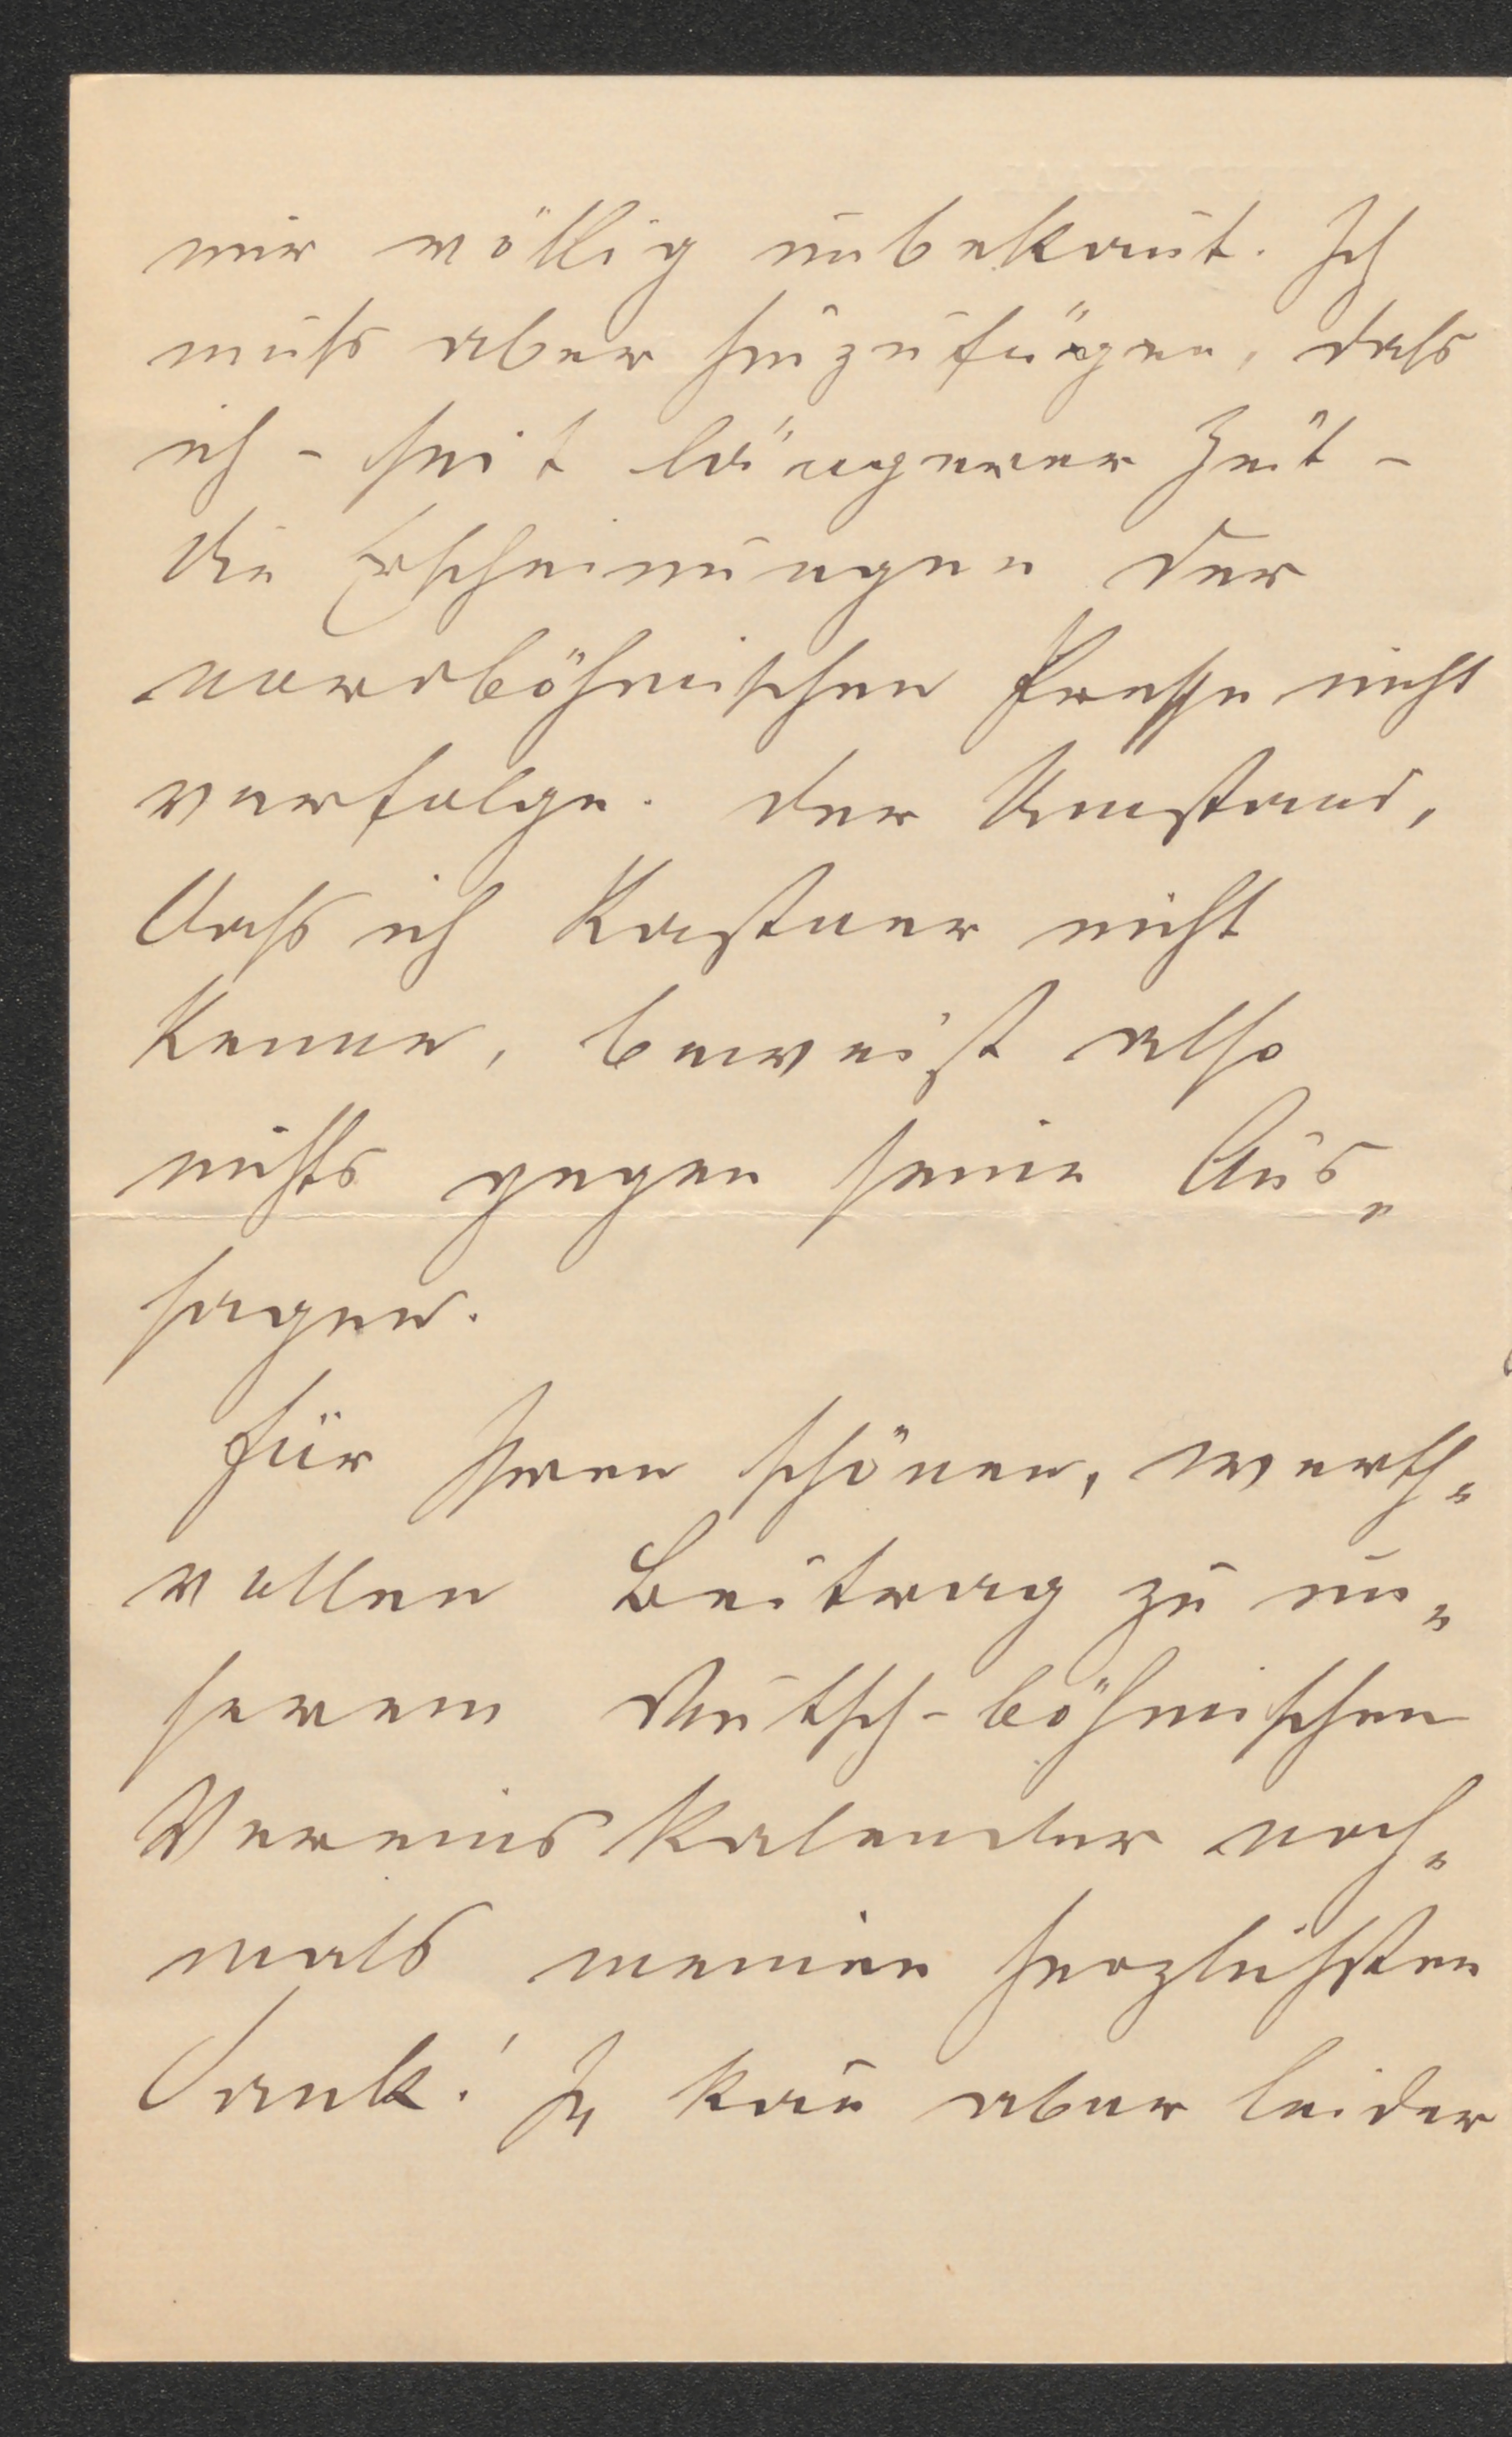 mir völlig unbekan̄t. Ich
muß aber hinzufügen, daß
ich – seit längerer Zeit –
die Erscheinungen der
nordböhmischen Presse nicht
verfolge. Der Umstand,
daß ich Kastner nicht
kenne, beweist also
nichts gegen seine Aus-
sagen.
Für Ihren schönen, werth-
vollen Beitrag zu un-
serem Deutsch-böhmischen
Vereinskalender noch-
mals meinen herzlichsten
Dank! Ich kan̄ aber leider